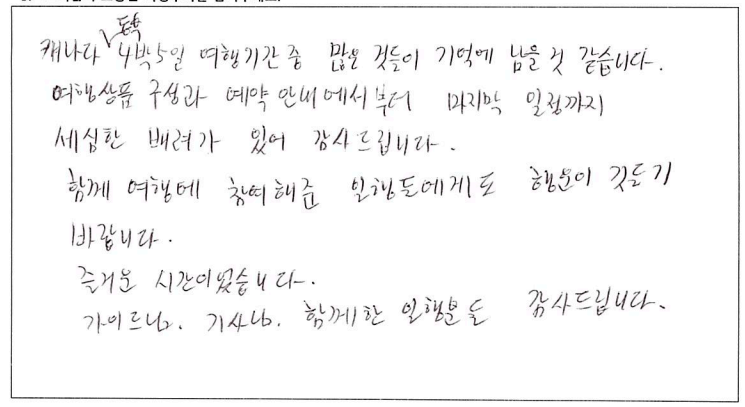 캐나다 동부 4박5일 여행기간 중 많은 것들이 기억에 남을 것 같습니다.
여행상품 구성과 예약 안내에서부터 마지막 일정까지
세심한 배려가 있어 감사드립니다.
함께 여행에 참여해준 일행들에게도 행운이 깃들기
바랍니다.
즐거운 시간이었습니다.
가이드님. 기사님. 함께한 일행분들 감사드립니다.